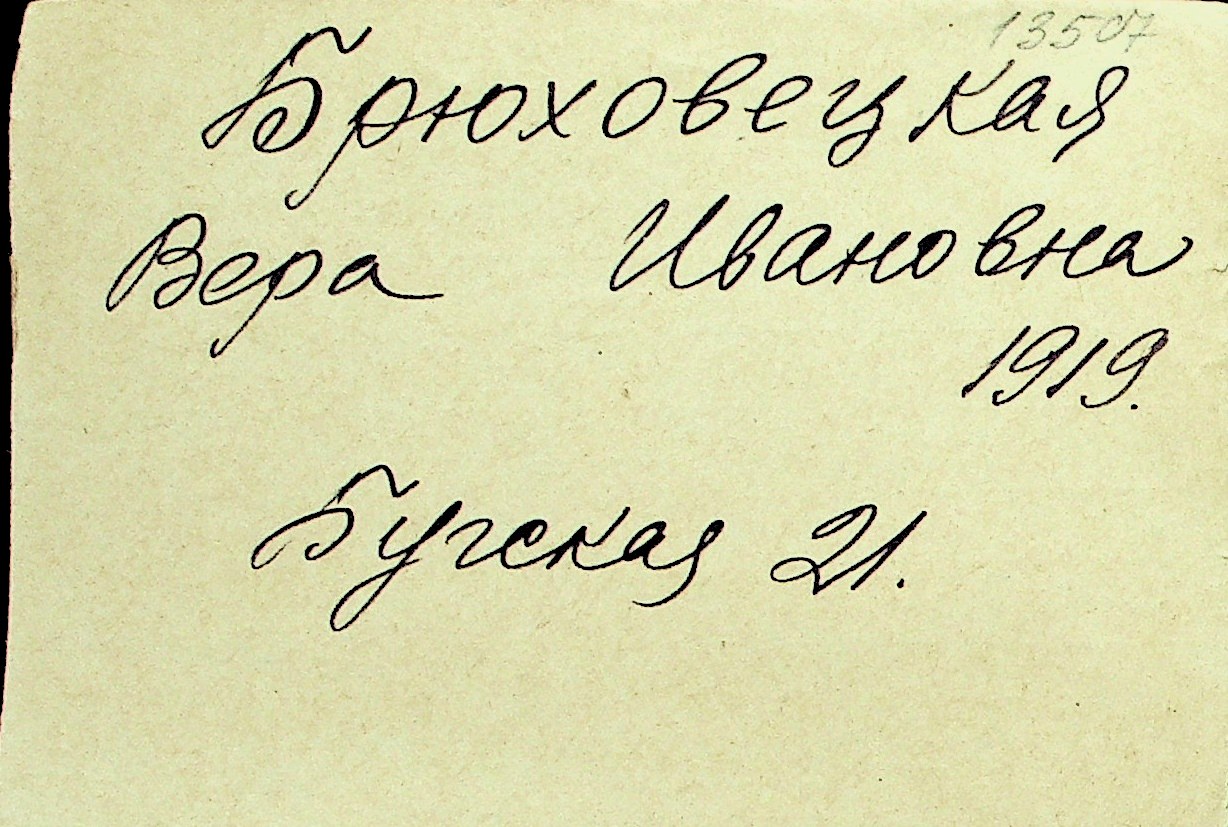 13507
Брюховецкая
Вера Ивановна
1919.
Бугская 21.